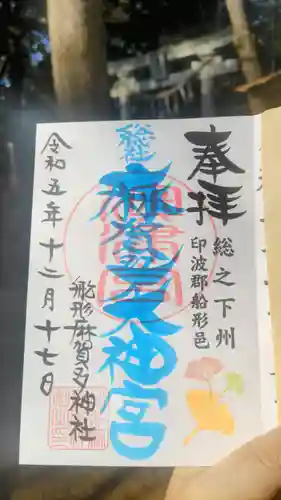 奉拝
総之下州
印波郡船形邑
総社
麻賀多大神宮
船形麻賀多神社
令和五年十二月十七日